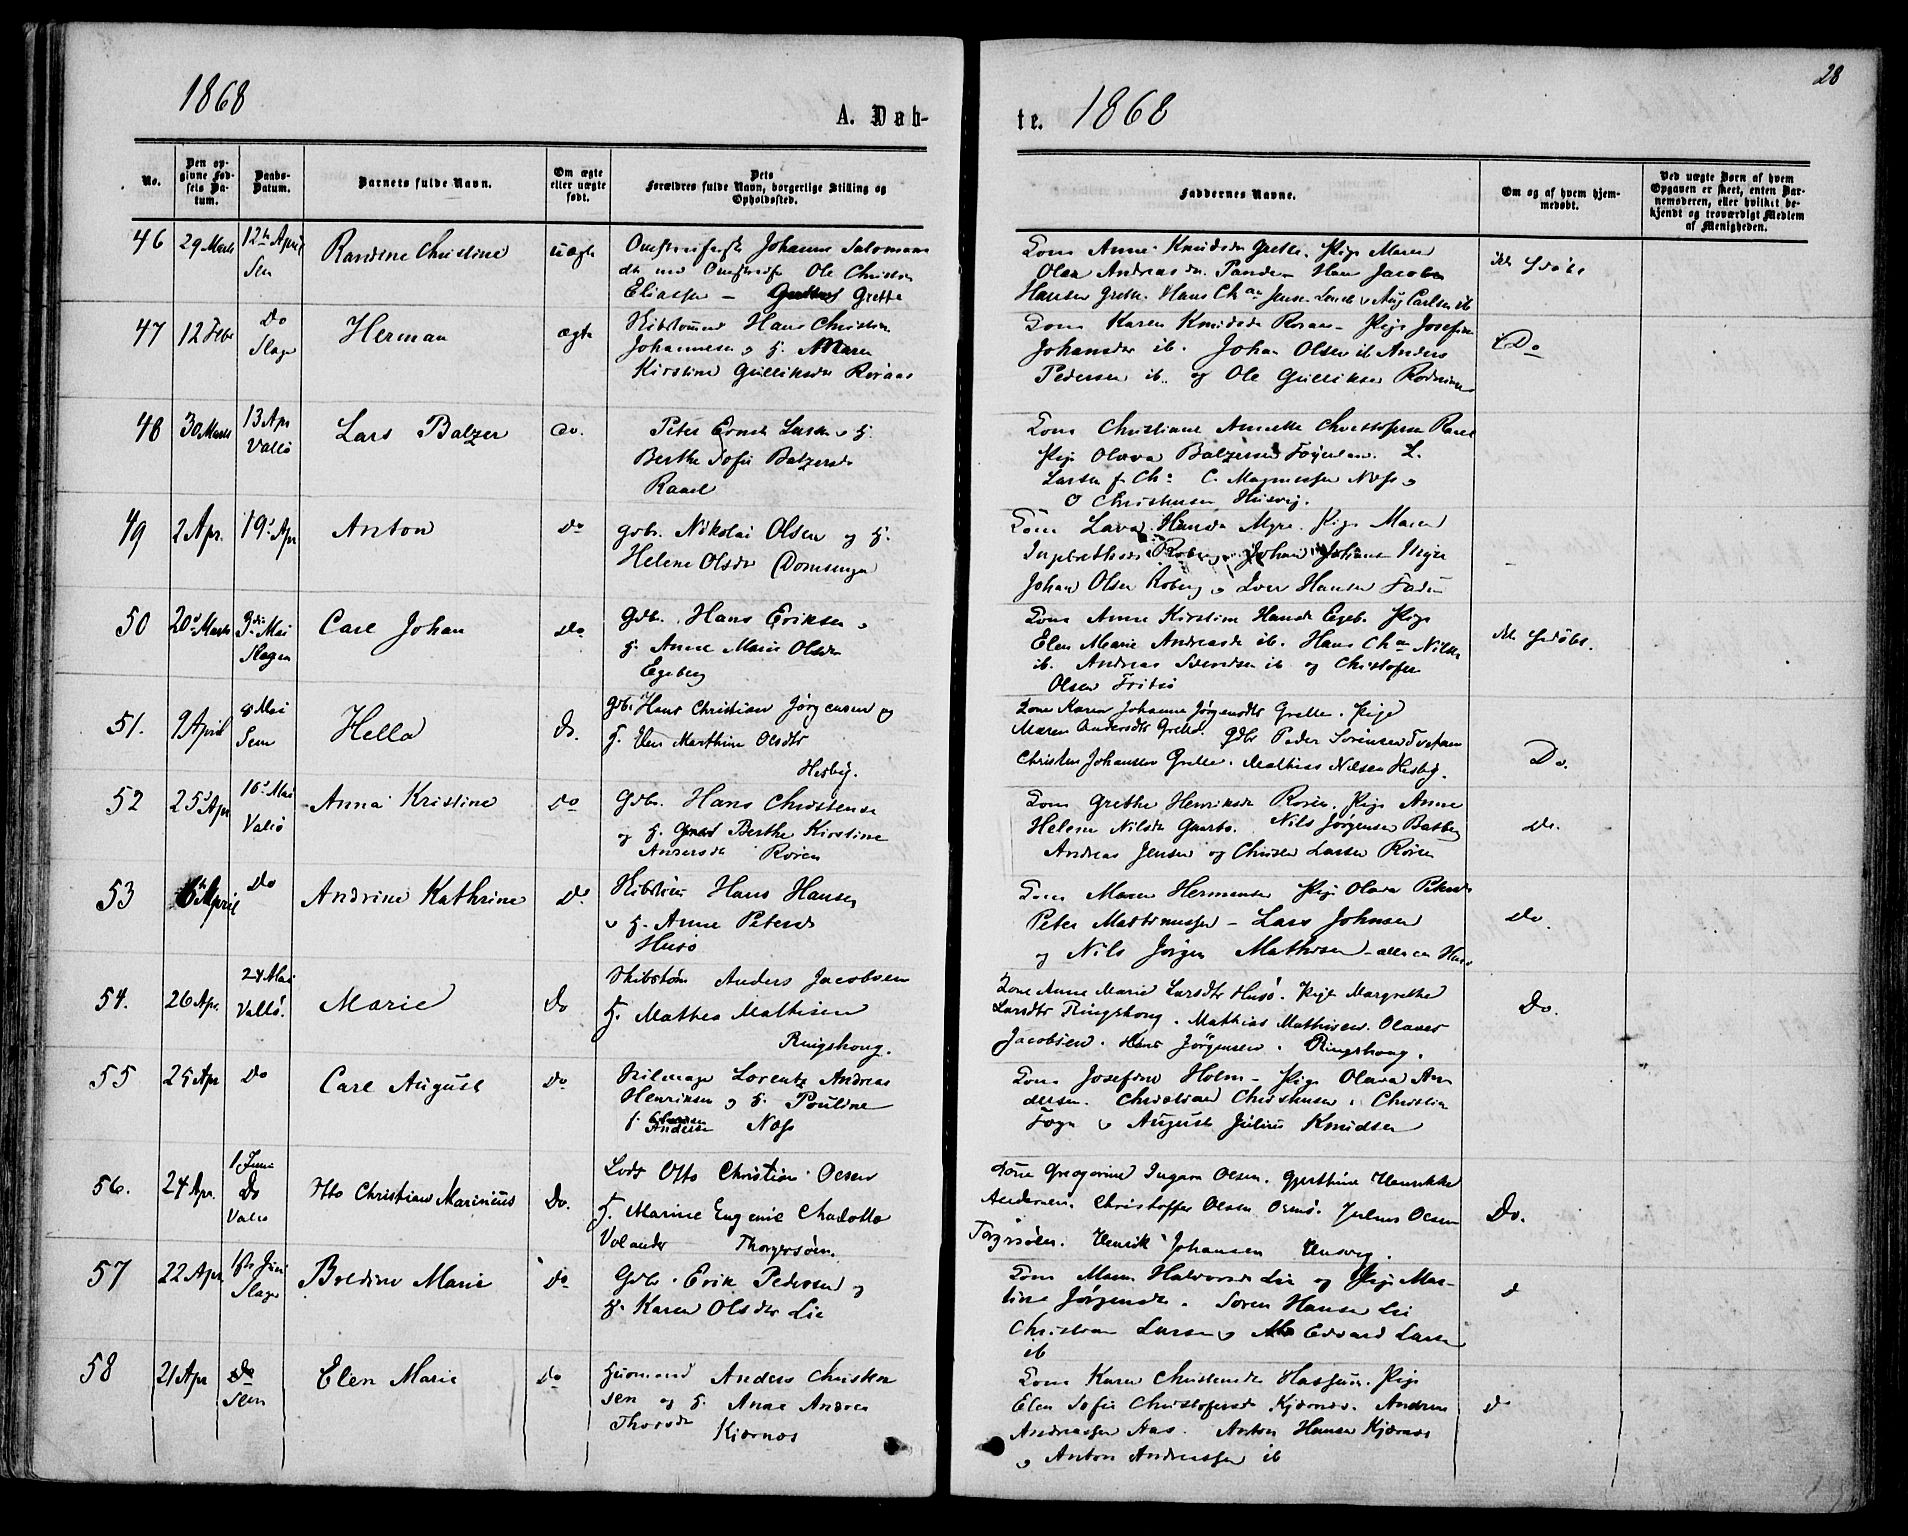 1868
A. Døb-
No.
Den op-
givne Fød-
sels Da-
tum.
Daabs-
Datum.
Barnets fulde Navn.
Om ægte
eller uægte
født.
Dets
Forældres fulde Navn, borgerlige Stilling og
Opholdssted.
46
29 Marts
12te April
Sem
Randine Christine
uægte
Johanne Salomons
Ole Christen
Eliassen — Grette
47
12 Febr
Do
Slagn
Herman
ægte
Skibstømmd Hans Christian
Johannesen og H. Maren
Kirstine Gulliksdr Roraas
48
30 Marts
13 Apr
Vallø
Lars Balzer
Do.
Peter Ernst Larsen og H.
Berthe Sofie Balzersdr
Rauel
49
2 Apr.
19 Apr
Anton
Do
Gdbr. Nikolai Olsen og H.
Helene Olsdr
50
20 Marts
3die Mai
Slagen
Carl Johan
Do
Gdb. Hans Eriksen og
H. Anne Marie Olsdr
Egeberg
51.
9 April
8 Mai
Sem
Hella
Do.
Gdbr Hans Christian Jørgensen og
H. Elen Marthine Olsdtr
Hesby.
52
25 Apr
10 Mai
Vallø
Anna Kristine
Do
Gdbr. Hans Christensen
og H. Berthe Kirstine
Andersdr Røren
53
6 April
Do
Andrine Kathrine
Do
Skibstøm Hans Hansen
og H. Anne Petersdr
Husø
54.
26 Apr.
24 Mai
Vallø.
Marie
Do
Skibstøm Anders Jacobsen
H. Mathea Mathisen
Ringshoug.
55
25 Apr
Do
Carl August
Do
Lorentz Andreas
Henriksen og H. Pouline
Andersen Næs
56.
24 Apr.
1 Juni
Do
Vallø
Otto Christian Marinius
Do.
Lods Otto Christian Olsen
H. Marine Eugenie Chalotte
Volander Thorgersøen.
57
22 Apr
Juni
Slagn
Boldine Marie
Do
Gdbr. Erik Pedersen og
H. Karen Olsdtr Lie
58
21 Apr
Do
Sem
Elen Marie
Do
Husmand Anders Christen
sen og H. Anne Andrea
Thorsdr Kjærnæs
te. 1868
28
Faddernes Navne.
Om og af hvem hjem-
medøbt.
Ved uægte Børn af hvem
Opgaven er skeet, enten Bar-
nemoderen, eller hvilket be-
kjendt og troværdigt Medlem
af Menigheden.
Kone Anne Knudsdr Grette. Pige Maren
Olea Andreasdr. Hans Jacob
Hansen Grette. Hans Chan Jensen og Aug Carlsen ib
ikke hjdøbt
Kone Karen Knudsdr Roraas — Pige Josefine
Johansdr ib. Johan Olsen ib Anders
Pedersen ib. og Ole Gulliksen
Do
Kone Christiane Annette Christofersen Rauel
Pige Olava Balzersen L.
Larsen C. Magnussen Næs og
O Christensen Husvig.
Kone Lava Hansdr Myre. Pige Maren
Ingebrethsdr Roberg Johan Johansen Myre
Johan Olsen Roberg og Iver Hansen
Kone Anne Kirstine Hansdr Egeb. Pige
Elen Marie Andreasdr ib. Hans Chan Nilsen
ib. Andreas ib og Christofer
Olsen Fritsø
ikke hjdøbt.
Kone Karen Johanne Jørgensdtr Grette. Pige
Maren Andersdtr Grette. Gdbr Peder Sørensen
Christen Johansen Grette. Mathias Nilsen Hesby.
Do.
Kone Grethe Henriksdr Røren. Pige Anne
Helene Nilsdr Nils Jørgensen Batberg
Andreas Jensen og Christen Larsen Røren
Do.
Kone Maren Hermansen Pige Olava Petersdr
Peter Mathinussen — Lars Johnsen
og Nils Jørgen Mathisen — alle ca Husø
Do.
Kone Anne Marie Larsdtr Husø. Pige Margrethe
Larsdtr Ringshoug. Mathias Mathisen. Olaves
Jacobsen. Hans Jørgensen. Ringshoug.
Do.
Kone Josefine Holm — Pige Olava An
dersen. Christian Christensen. Christian
Foyn og August Julius Knudsen
Kone Gregorine Ingara Olsen. Gjerthine Henrikke
Andersen. Christoffer Olsen Ormø. Julius Olsen
Torgersøen. Henrik Johansen Husvig.
Do.
Kone Maren Halvorsdr Lie og Pige Mar-
tine Jørgensdr. Søren Hansen Lie
Christian Larsen og Edvard Larsen
ib
d
Kone Karen Christensdr Hassum. Pige
Elen Sofie Christofersdr Kjærnæs. Andreas
Andreassen Aas. Anton Hansen Kjærnæs
og Anton Andreassen ib
do